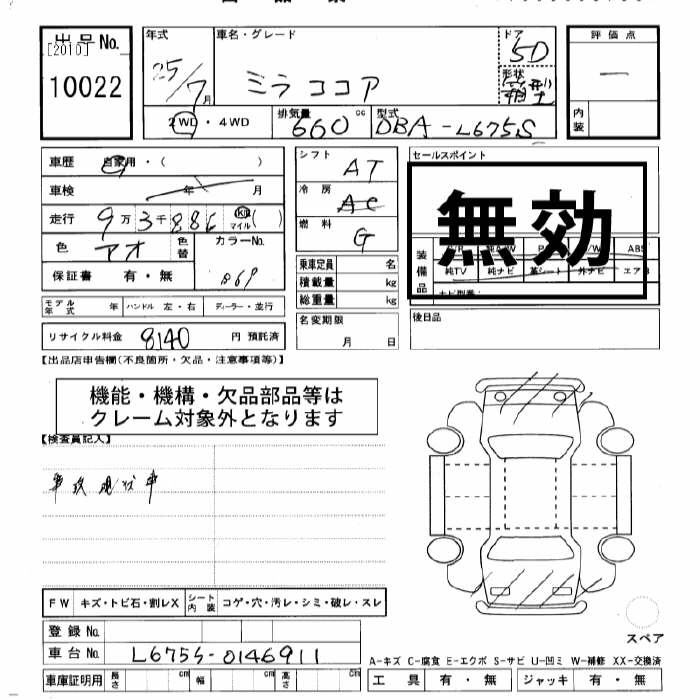 出品No.
[2010]
10022
年式
25/7月
車名・グレード
ミラ ココア
ドア
5D
形状
箱型
評価点
一
内装
2WD・4WD
排気量
660 cc
型式
DBA-L675S
車歴 自家用・( )
車検 年 月
走行 9万3千886 km マイル ( )
色 アオ 色替
カラーNo.
B69
保証書 有・無
シフト AT
冷房 AC
燃料 G
乗車定員 名
積載量 kg
総重量 kg
セールスポイント
無効
装備品
純TV 純ナビ 革シート 外ナビ エアB
モデル年式 年 ハンドル 左・右 ディーラー・並行
リサイクル料金 8140 円 預託済
名変期限
月 日
後日品
【出品店申告欄(不良箇所・欠品・注意事項等)】
機能・機構・欠品部品等は
クレーム対象外となります
【検査員記入】
事故現状車
FW キズ・トビ石・割レX シート内装 コゲ・穴・汚レ・シミ・破レ・スレ
スペア
登録No.
車台No. L675S-0146911
A-キズ C-腐食 E-エクボ S-サビ U-凹ミ W-補修 XX-交換済
車庫証明用 長さ cm 幅 cm 高さ cm
工具 有・無 ジャッキ 有・無